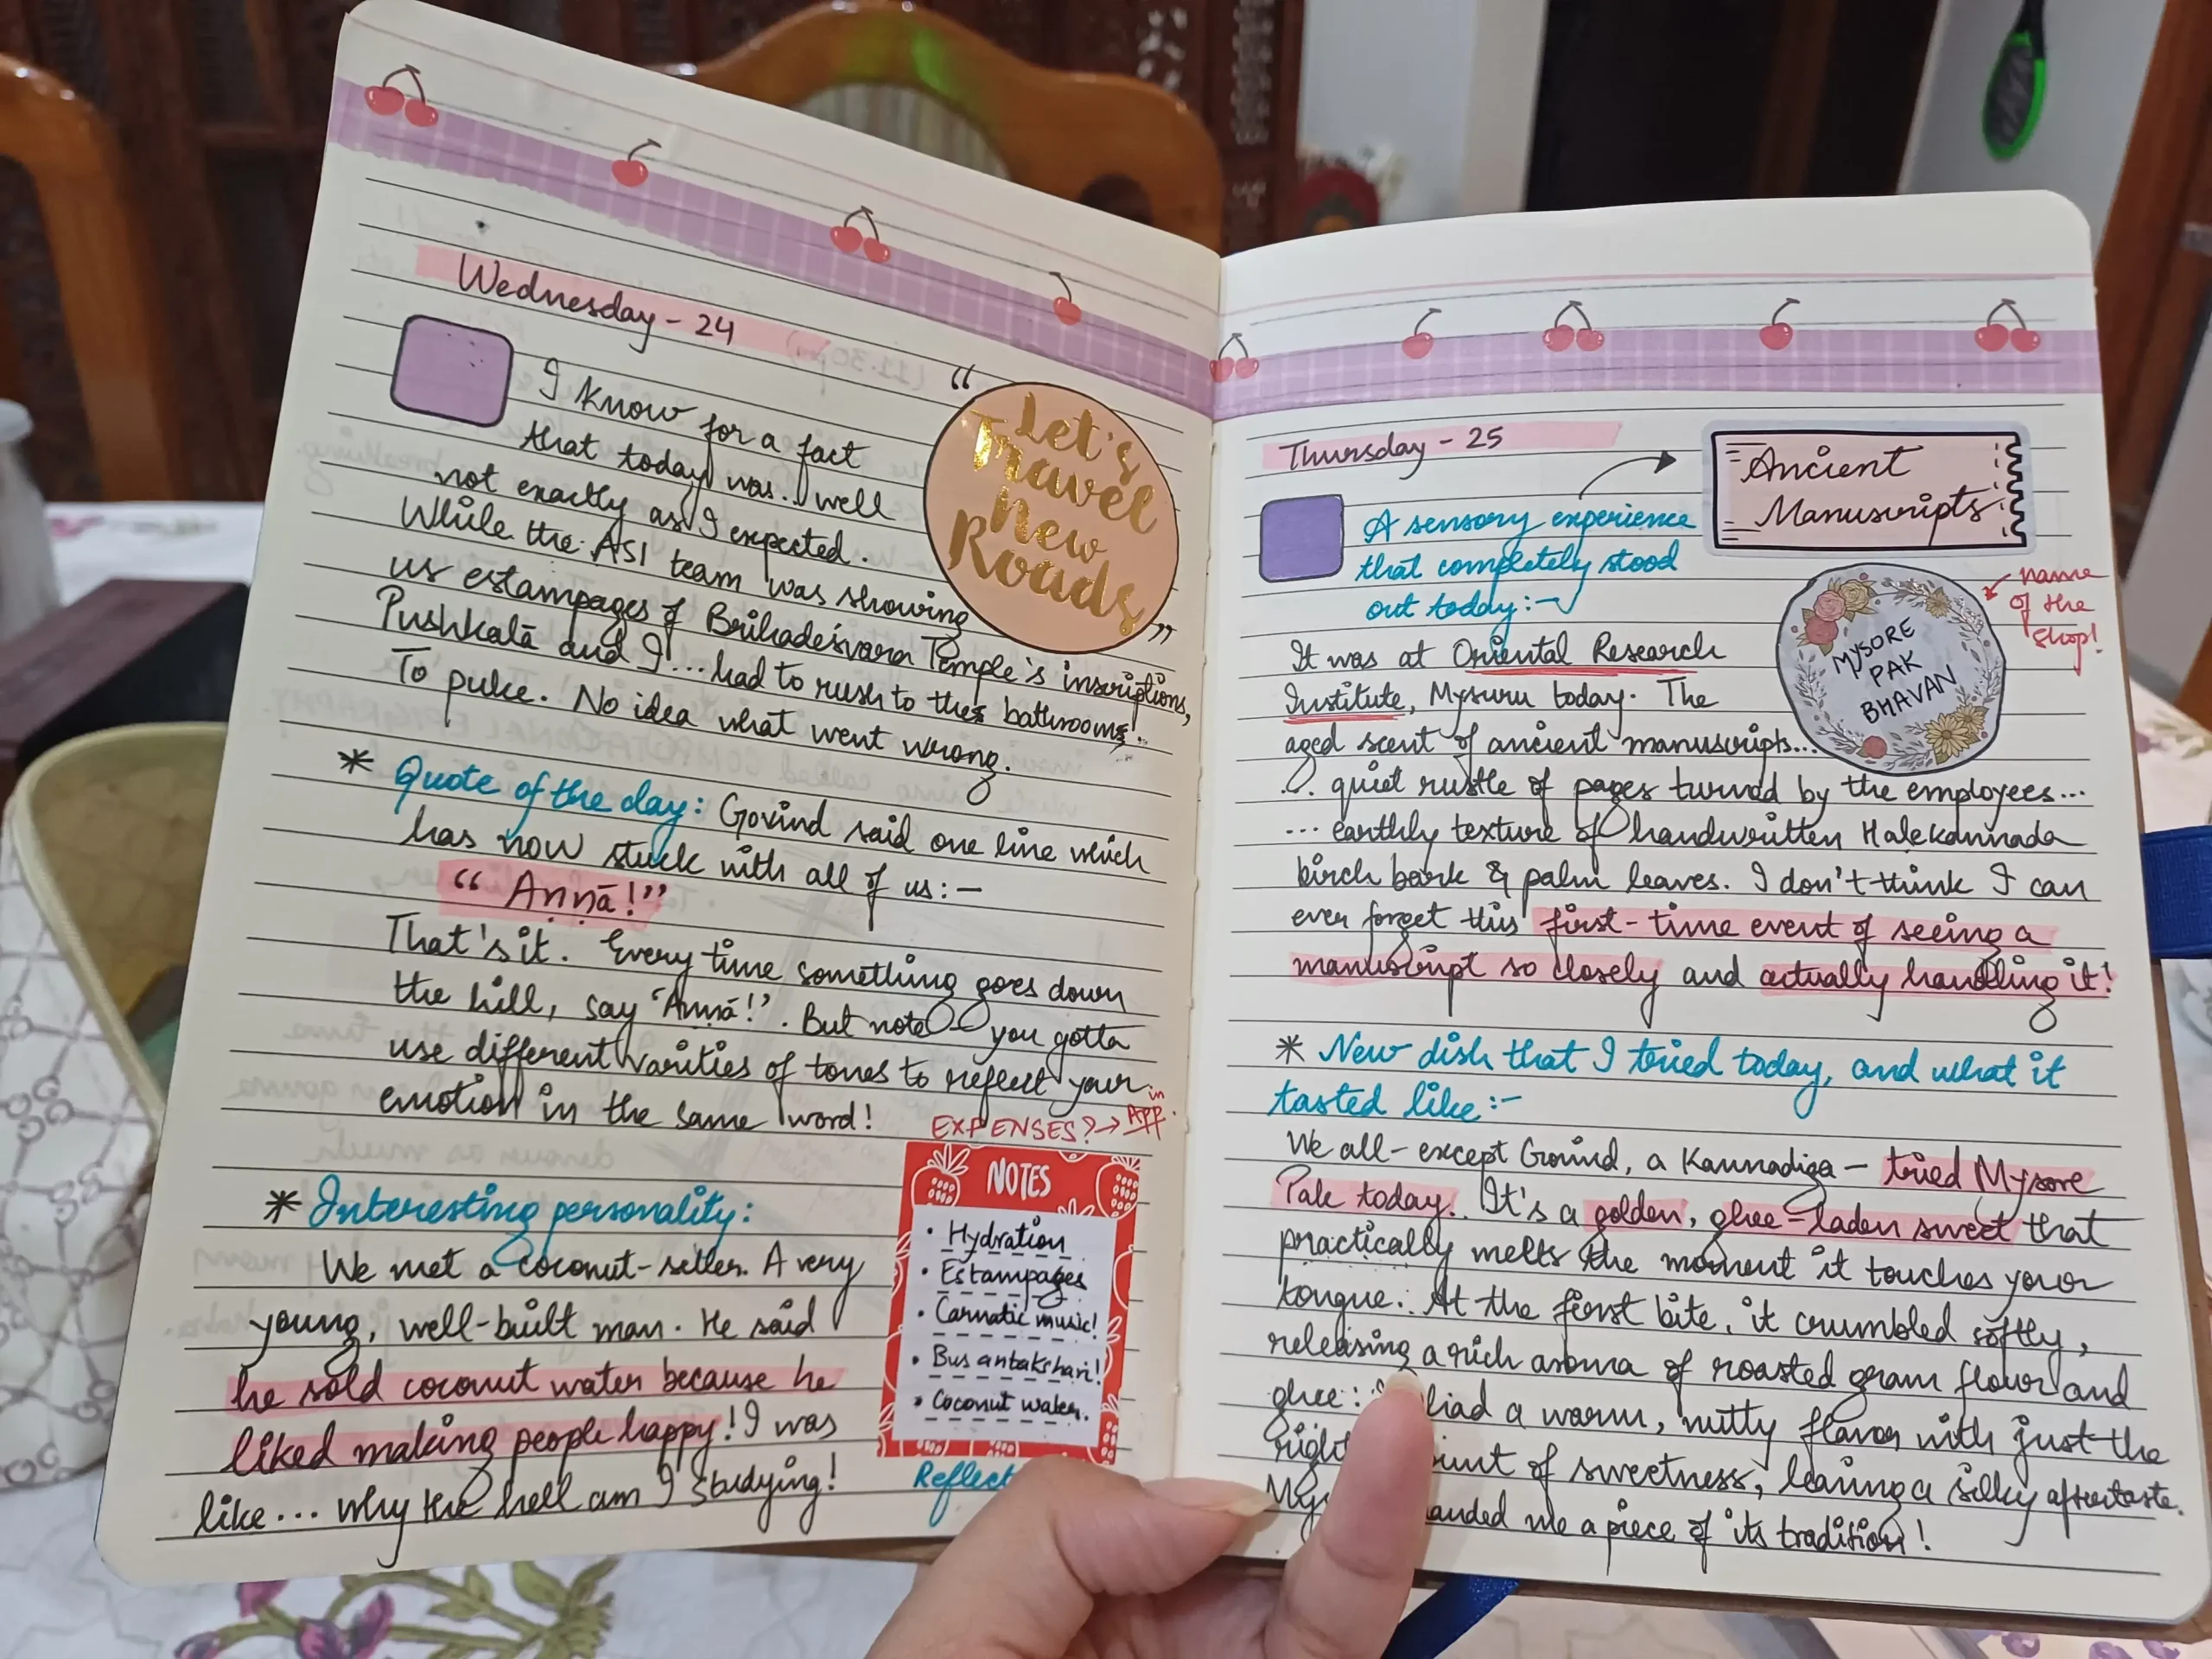 Wednesday - 24
I know for a fact
that today was.. well
not exactly as I expected.
While the ASI team was showing
us estampages of Brihadeśvara Temple's inscriptions,
Pushkalā and I... had to rush to the bathrooms.
To puke. No idea what went wrong.
“
Let's
Travel
new
Roads
”
* Quote of the day: Govind said one line which
has now stuck with all of us:—
“Aṇṇā!”
That's it. Every time something goes down
the hill, say ‘Aṇṇā!’. But note — you gotta
use different varities of tones to reflect your
emotion in the same word!
EXPENSES? → in
APP.
* Interesting personality:
We met a coconut-seller. A very
young, well-built man. He said
he sold coconut water because he
liked making people happy! I was
like... why the hell am I studying!
NOTES
• Hydration
• Estampages
• Carnatic music!
• Bus antakshari!
• Coconut water.
Thursday - 25
Ancient
Manuscripts
A sensory experience
that completely stood
out today:—
name
of the
shop!
MYSORE
PAK
BHAVAN
It was at Oriental Research
Institute, Mysuru today. The
aged scent of ancient manuscripts...
... quiet rustle of pages turned by the employees...
... earthly texture of handwritten Halekannada
birch bark & palm leaves. I don't think I can
ever forget this first-time event of seeing a
manuscript so closely and actually handling it!
* New dish that I tried today, and what it
tasted like:-
We all - except Govind, a Kannadiga - tried Mysore
Pak today. It's a golden, ghee-laden sweet that
practically melts the moment it touches your
tongue. At the first bite, it crumbled softly,
releasing a rich aroma of roasted gram flour and
ghee. had a warm, nutty flavor with just the
right of sweetness, leaving a silky aftertaste.
me a piece of its tradition!